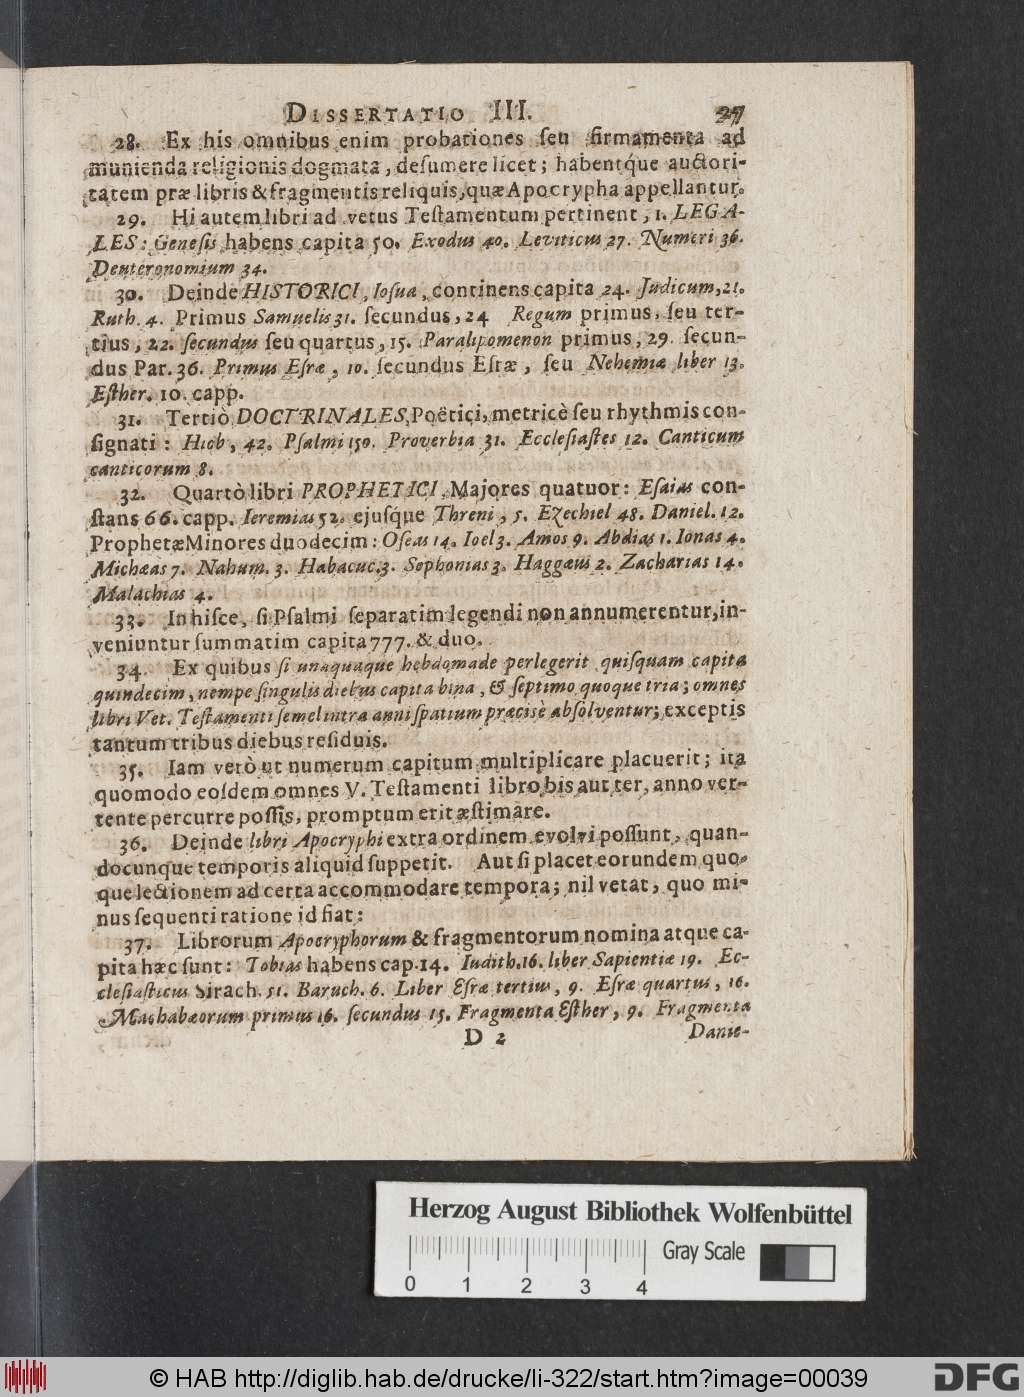 DISSERTATIO III. 27
28. Ex his omnibus enim probationes ſeu firmamenta ad
munienda religionis dogmata, deſumere licet; habentq́ue auctori-
tatem præ libris & fragmentis reliquis, quæ Apocrypha appellantur.
29. Hi autem libri ad vetus Teſtamentum pertinent, 1. LEGA-
LES: Geneſis habens capita 50. Exodus 40. Leviticus 27. Numeri 36.
Deuteronomium 34.
30. Deinde HISTORICI, Ioſua, continens capita 24. Judicum, 21.
Ruth. 4. Primus Samuelis 31. ſecundus, 24 Regum primus, ſeu ter-
tius, 22. ſecundus ſeu quartus, 15. Paralipomenon primus, 29. ſecun-
dus Par. 36. Primus Eſræ, 10. ſecundus Eſræ, ſeu Nehemiæ liber 13.
Eſther. 10. capp.
31. Tertiò DOCTRINALES, Poëtici, metricè ſeu rhythmis con-
ſignati: Hiob, 42. Pſalmi 150. Proverbia 31. Eccleſiaſtes 12. Canticum
canticorum 8.
32. Quartò libri PROPHETICI, Majores quatuor: Eſaias con-
ſtans 66. capp. Ieremias 52. ejuſq́ue Threni, 5. Ezechiel 48. Daniel. 12.
Prophetæ Minores duodecim: Oſeas 14. Ioel 3. Amos 9. Abdias 1. Ionas 4.
Michæas 7. Nahum. 3. Habacuc. 3. Sophonias 3. Haggæus 2. Zacharias 14.
Malachias 4.
33. In hiſce, ſi Pſalmi ſeparatim legendi non annumerentur, in-
veniuntur ſummatim capita 777. & duo.
34. Ex quibus ſi unaquaque hebdomade perlegerit quiſquam capita
quindecim, nempe ſingulis diebus capita bina, & ſeptimo quoque tria; omnes
libri Vet. Teſtamenti ſemel intra anni ſpatium præcisè abſolventur; exceptis
tantum tribus diebus reſiduis.
35. Iam verò ut numerum capitum multiplicare placuerit; ita
quomodo eoſdem omnes V. Teſtamenti libro bis aut ter, anno ver-
tente percurre poſſis, promptum erit æſtimare.
36. Deinde libri Apocryphi extra ordinem evolvi poſſunt, quan-
docunque temporis aliquid ſuppetit. Aut ſi placet eorundem quo-
que lectionem ad certa accommodare tempora; nil vetat, quo mi-
nus ſequenti ratione id fiat:
37. Librorum Apocryphorum & fragmentorum nomina atque ca-
pita hæc ſunt: Tobias habens cap. 14. Iudith. 16. liber Sapientiæ 19. Ec-
cleſiaſticus Sirach. 51. Baruch. 6. Liber Eſræ tertius, 9. Eſræ quartus, 16.
Machabæorum primus 16. ſecundus 15. Fragmenta Eſther, 9. Fragmenta
D 2 Danie-
Herzog August Bibliothek Wolfenbüttel
Gray Scale
0 1 2 3 4
© HAB http://diglib.hab.de/drucke/li-322/start.htm?image=00039
DFG